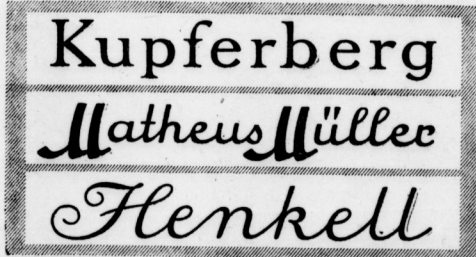 Kupferberg
Matheus Müller
Henkell